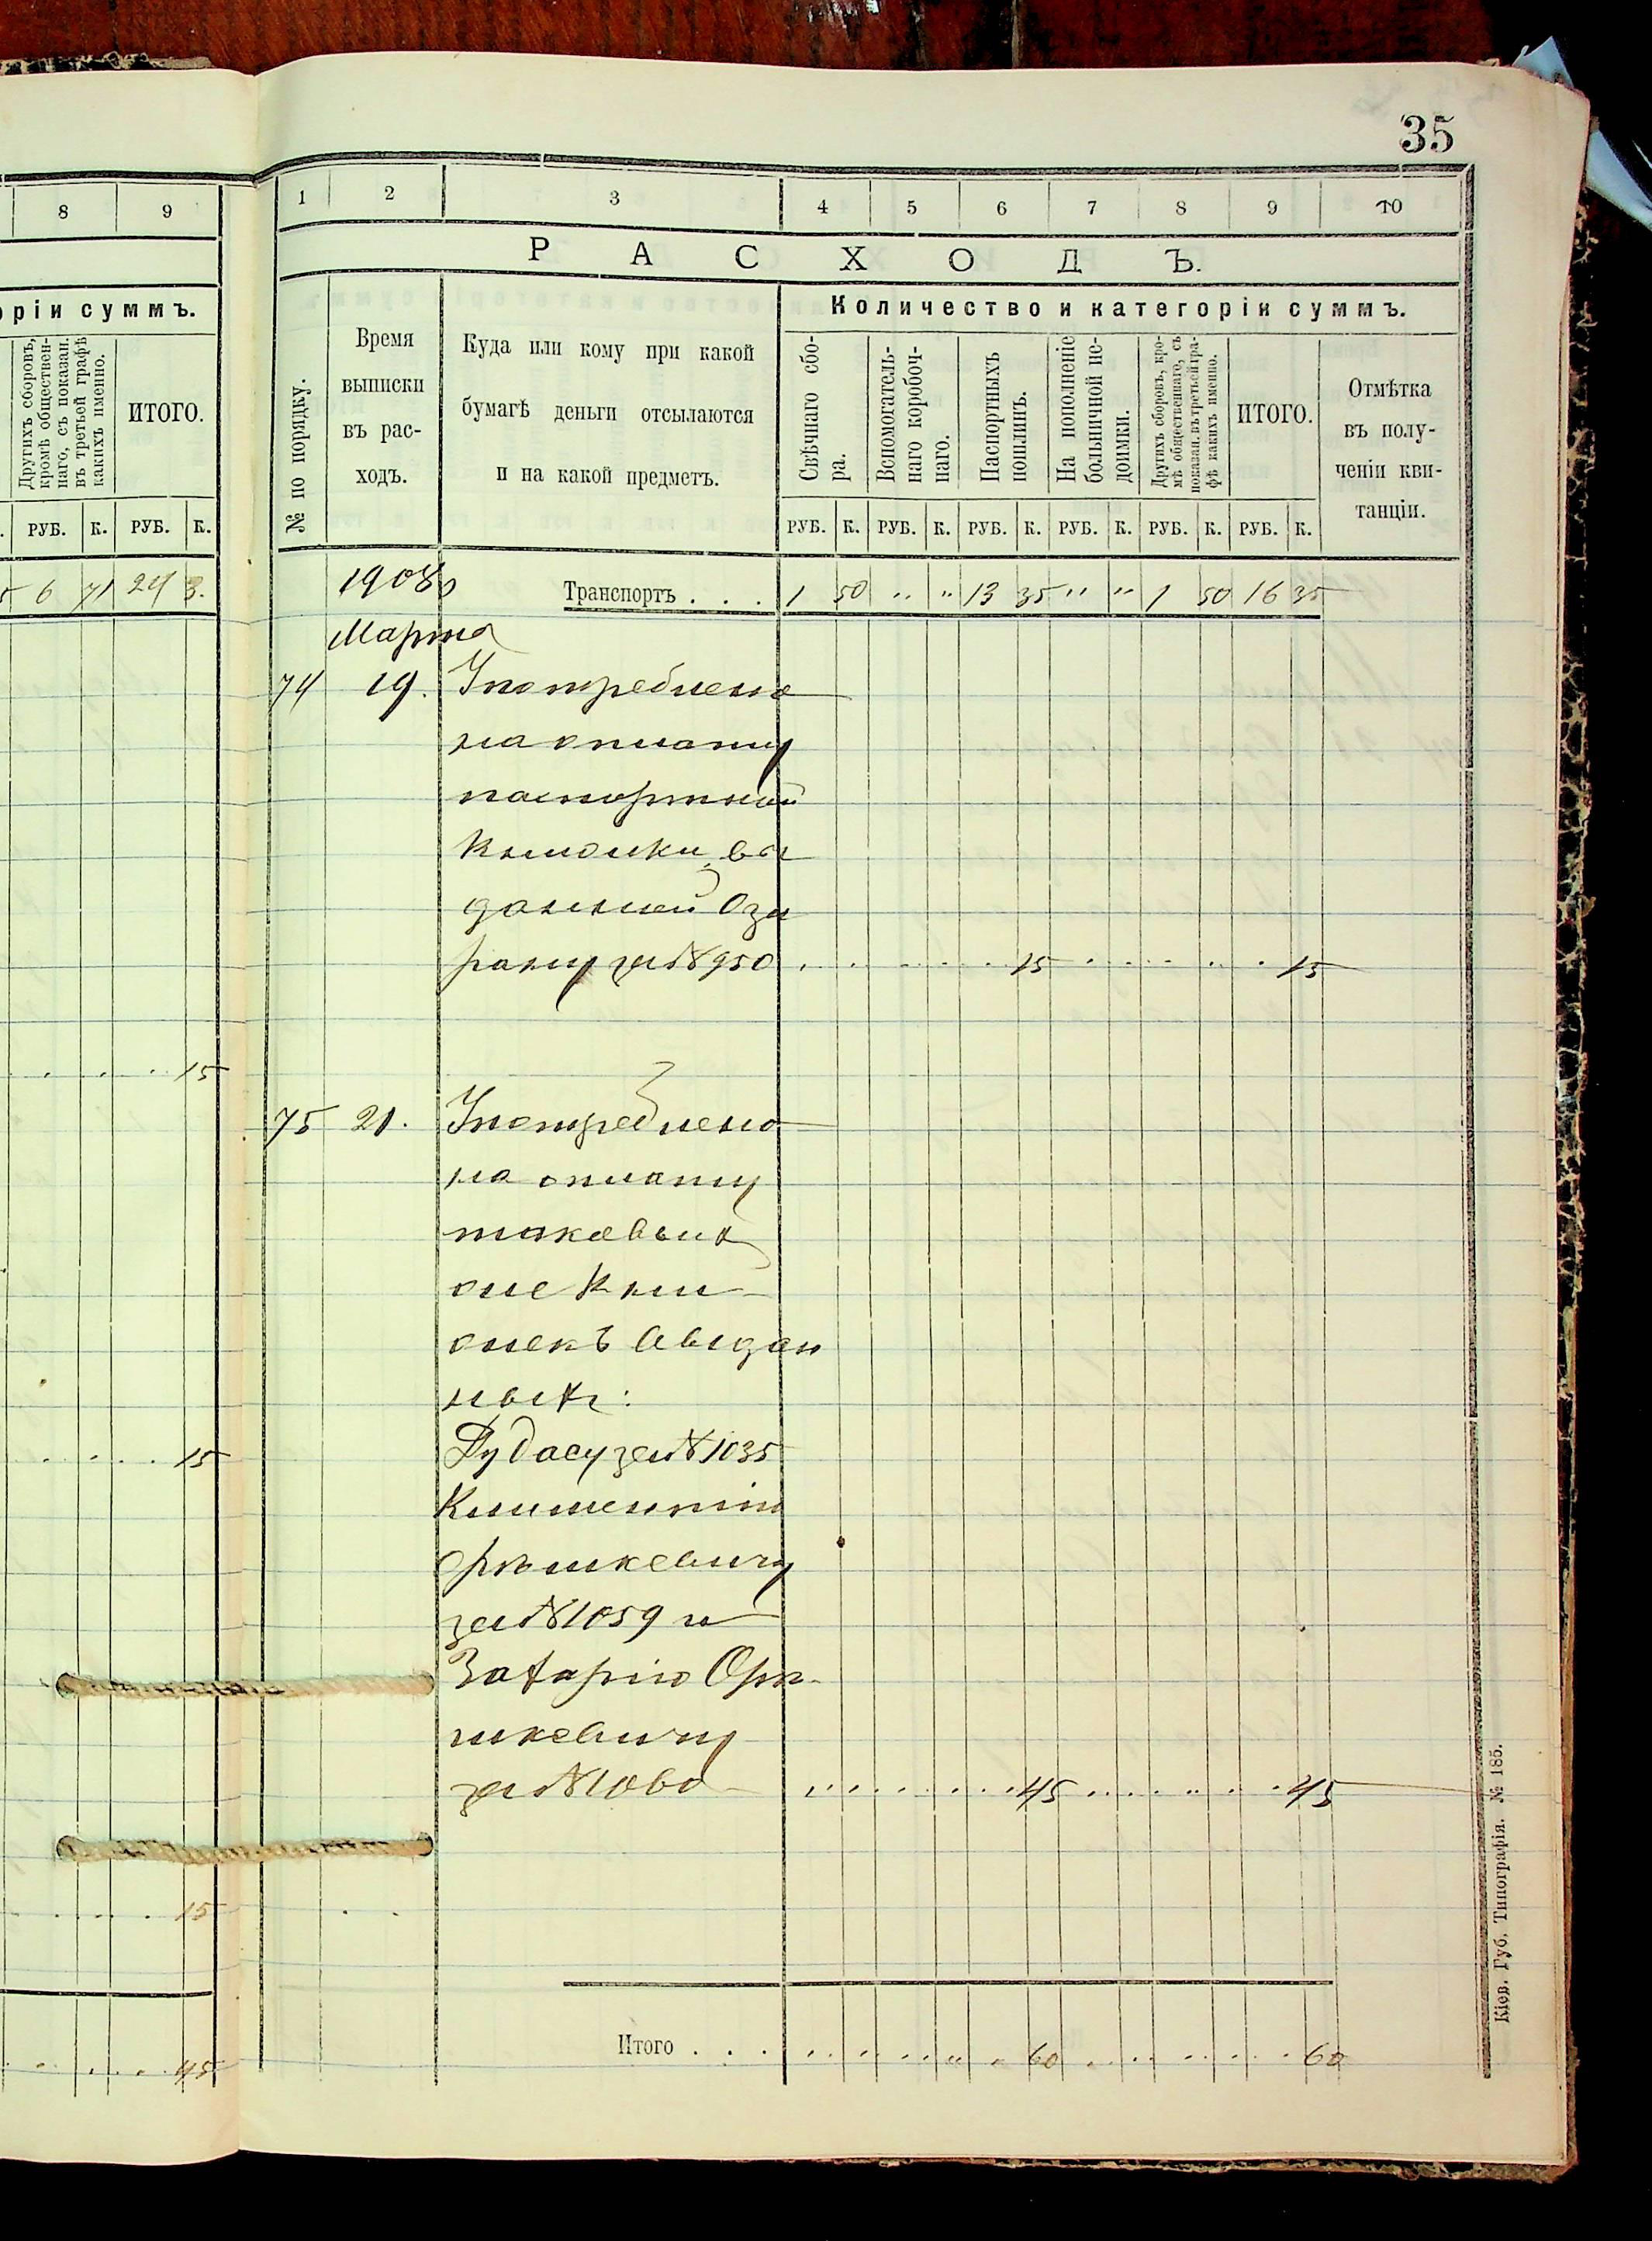 35
8 9
1 2 3 4 5 6 7 8 9 10
РАСХОДЪ.
оріи суммъ.
Других сборовъ, кромѣ общественнаго, съ показан. въ третьей графѣ какихъ именно.
ИТОГО.
РУБ. К. РУБ. К.
6 71 24 3.
15
15
15
45
№ по порядку.
Время
выписки
въ рас-
ходъ.
Куда или кому при какой
бумагѣ деньги отсылаются
и на какой предметъ.
Количество и категоріи суммъ.
Свѣчнаго сбо-
ра.
Вспомогатель-
наго коробоч-
наго.
Паспортныхъ
пошлинъ.
На пополненіе
больничной не-
доимки.
Другихъ сборовъ, кро-
мѣ общественнаго, съ
показан. въ третьей гра-
фѣ какихъ именно.
ИТОГО.
Отмѣтка
въ полу-
ченіи кви-
танціи.
РУБ. К. РУБ. К. РУБ. К. РУБ. К. РУБ. К. РУБ. К.
1908
Транспортъ . . . 1 50 " " 13 35 " " 1 50 16 35
Марта
74 19. Употреблено
на оплату
паспортной
книжки, вы
данной Ози
рану за № 950 15 15
75 21. Употреблено
на оплату
таковыхъ
же кни
жекъ выдан
ныхъ:
Дубасу за № 1035
за № 1059 и
Захарію Орѣ-
шкевичу
за № 1060 45 45
Итого . . . 60 60
Кіев. Губ. Типографія. № 185.